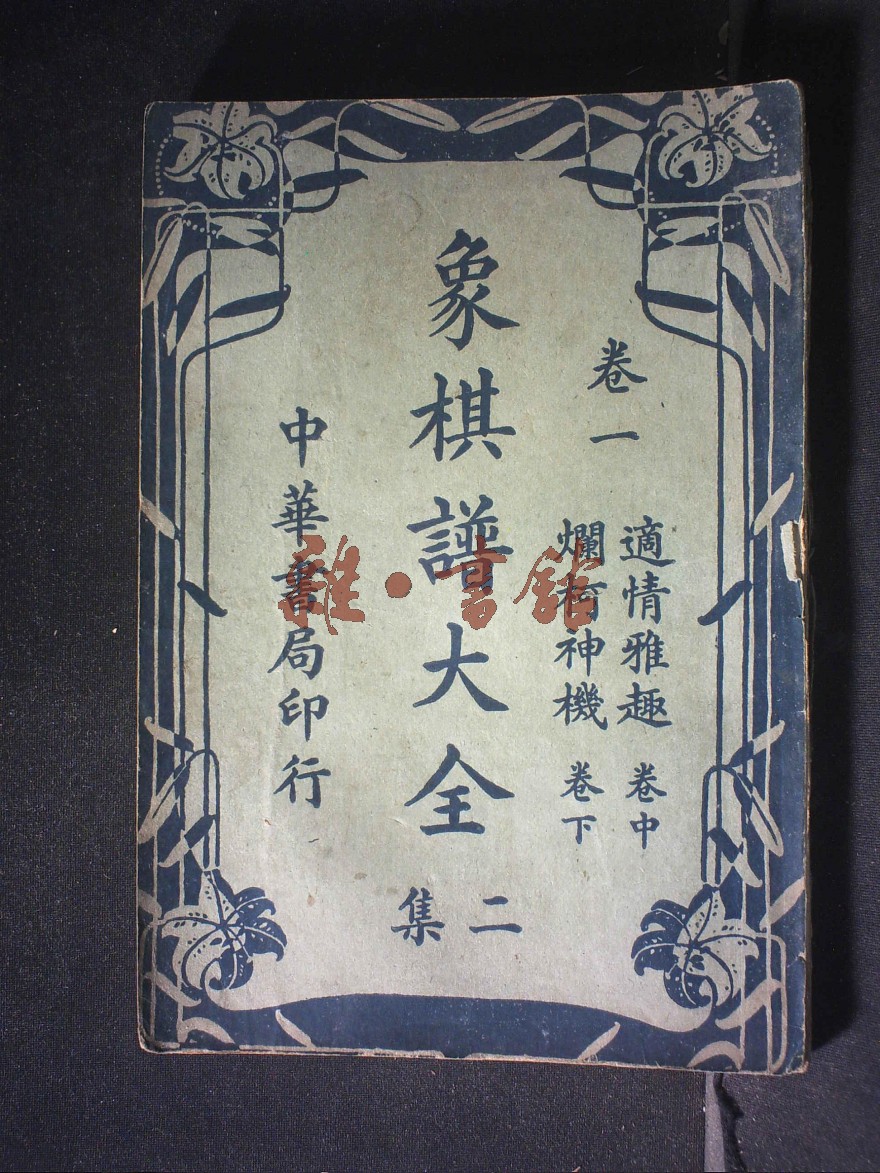 卷一
適情雅趣 卷中
爛柯神機 卷下
象棋譜大全
二集
中華書局印行
雜·書館